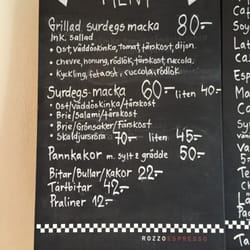 MENY
Grillad surdegs macka 80:-
Ink. sallad
• Ost, väddöskinka, tomat, färskost, dijon
• chevre, honung, rödlök, färskost, ruccola,
• kyckling, fetaost, ruccola, rödlök
Surdegs-macka 60:- liten 40:-
• Ost/Väddöskinka/färskost
• Brie/Salami/färskost
• Brie/Grönsaker/Färskost
• Skaldjursröra 70:- liten 45:-
Pannkakor m. sylt & grädde 50:-
Bitar/Bullar/Kakor 22:-
Tårtbitar 42:-
Praliner 12:-
ROZZO ESPRESSO